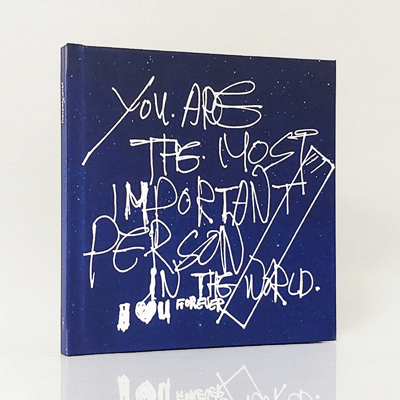 YOU. ARE
THE. MOST
IMPORTANT
PERSON
IN THE WORLD.
I ♥ U FOREVER